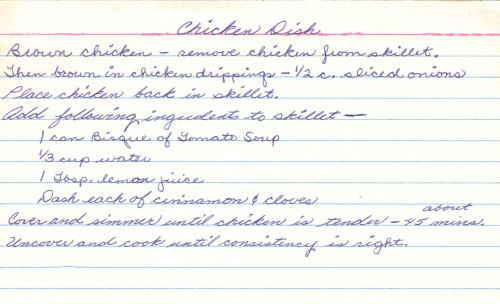 Chicken Dish
Brown chicken - remove chicken from skillet.
Then brown in chicken drippings - 1/2 c. sliced onions
Place chicken back in skillet.
Add following ingredient to skillet —
1 can Bisque of Tomato Soup
1/3 cup water
1 Tbsp. lemon juice
Dash each of cinnamon & cloves
about
Cover and simmer until chicken is tender - 45 mins.
Uncover and cook until consistency is right.